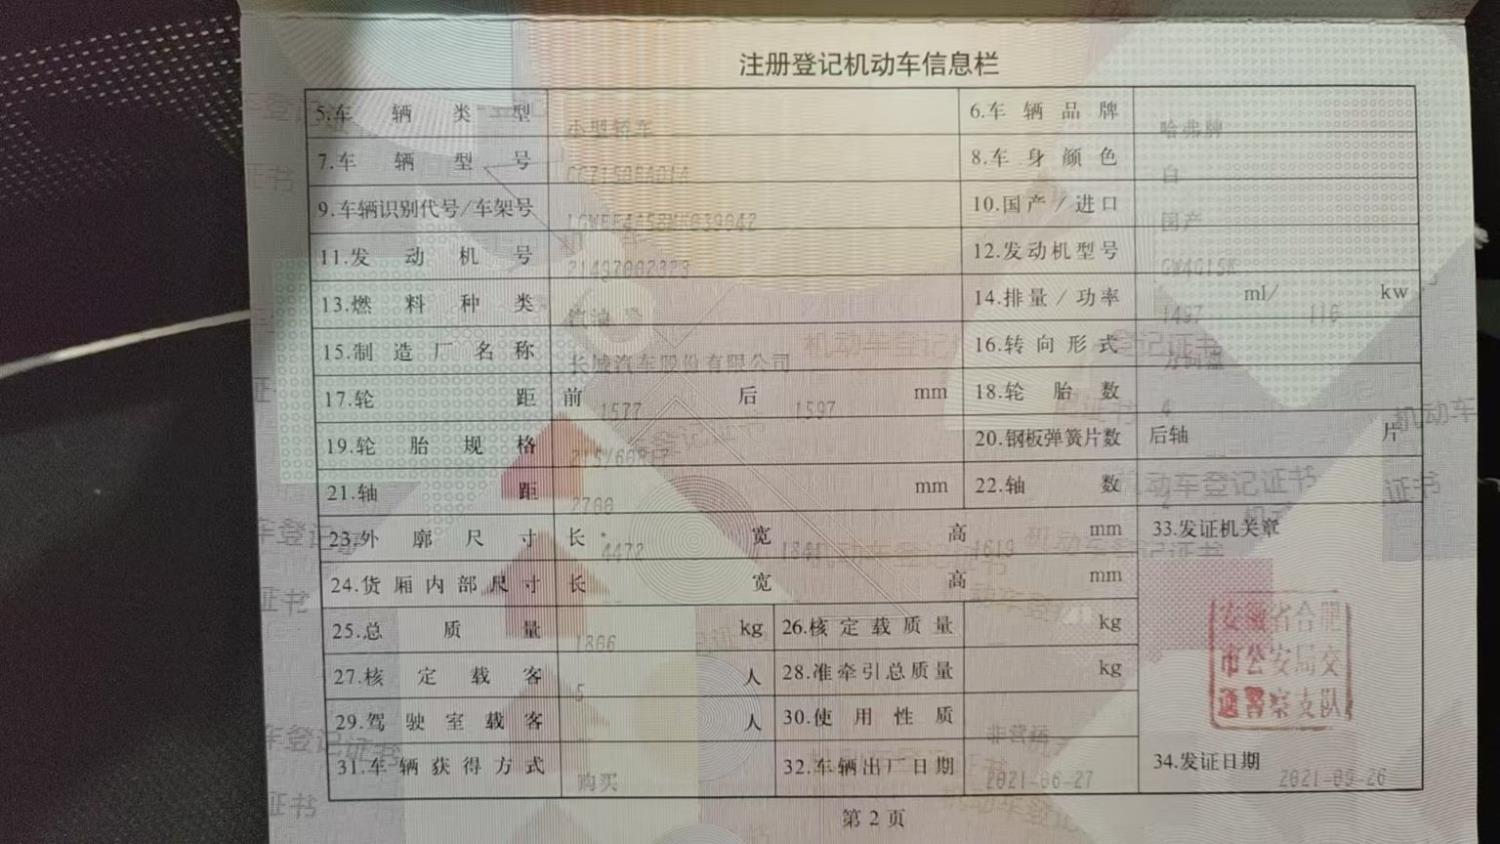 注册登记机动车信息栏
5.车辆类型 小型轿车 6.车辆品牌 哈弗牌
7.车辆型号 8.车身颜色 白
9.车辆识别代号/车架号 10.国产/进口 国产
11.发动机号 12.发动机型号
13.燃料种类 汽油 14.排量/功率 1497 ml/ 110 kw
15.制造厂名称 长城汽车股份有限公司 16.转向形式 方向盘
17.轮距 前 1577 后 1597 mm 18.轮胎数 4
19.轮胎规格 20.钢板弹簧片数 后轴 片
21.轴距 2700 mm 22.轴数 2
23.外廓尺寸 长 4472 宽 1841 高 1619 mm 33.发证机关章
24.货厢内部尺寸 长 -- 宽 高 mm
安徽省合肥
市公安局交
通警察支队
25.总质量 1866 kg 26.核定载质量 kg
27.核定载客 5 人 28.准牵引总质量 kg
29.驾驶室载客 人 30.使用性质 非营运
31.车辆获得方式 购买 32.车辆出厂日期 2021-06-27 34.发证日期 2021-09-26
第2页